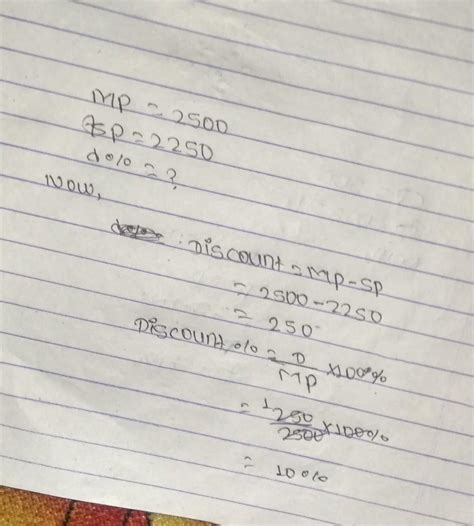 MP = 2500
SP = 2250
d% = ?
Now,
Discount = MP - SP
= 2500 - 2250
= 250
Discount % = D/MP × 100%
= 250/2500 × 100%
= 10%